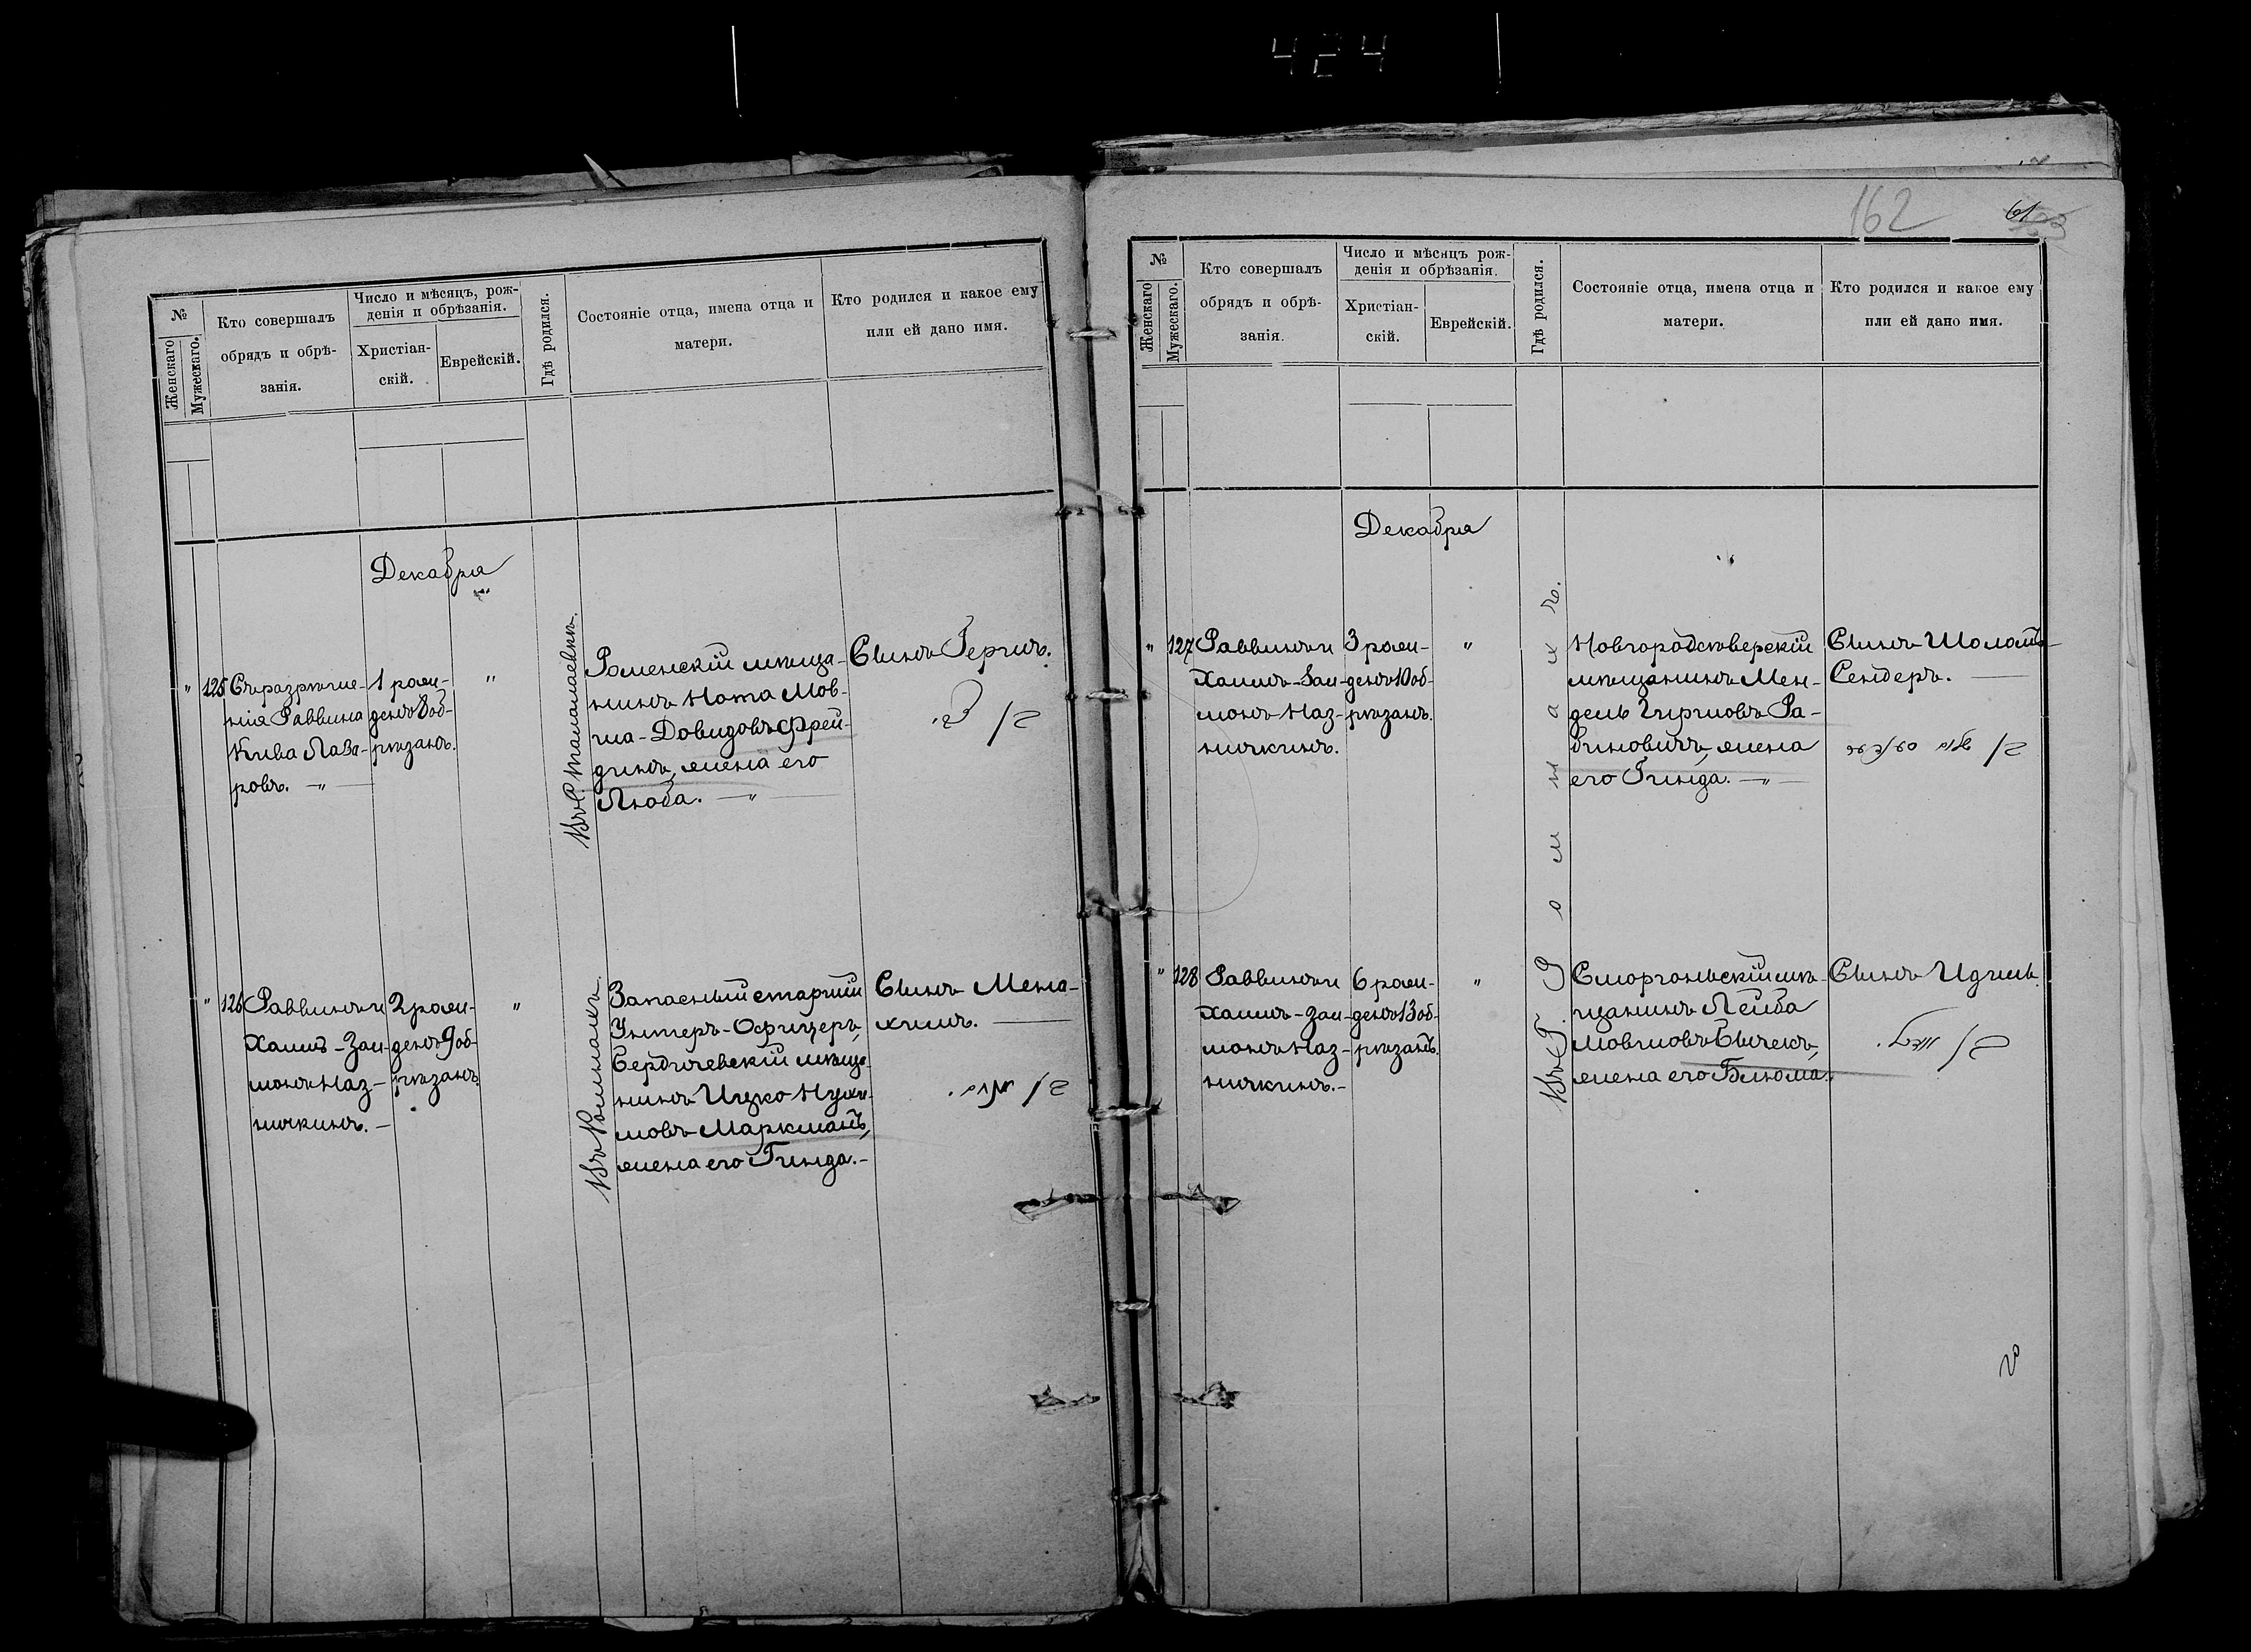 424
№
Женскаго
Мужескаго.
Кто совершалъ
обрядъ и обрѣ-
занія.
Число и мѣсяцъ, рож-
денія и обрѣзанія.
Христіан-
скій.
Еврейскій.
Гдѣ родился.
Состояніе отца, имена отца и
матери.
Кто родился и какое ему
или ей дано имя.
Декабря
" 125
Съ разрѣше-
нія Раввина
Кива Лаза-
ровъ. — " —
1 рож-
денъ 8 об-
рѣзанъ.
"
Роменскій мѣща-
нинъ Нота Мов-
ша-Довидовъ Фрей-
динъ, жена его
Люба. — " —
Сынъ Гершъ.
" 126
Раввинъ и
Хаимъ-Зал-
монъ Наз-
нички​нъ. —
2 рож-
денъ 9 об-
рѣзанъ.
"
Въ Ромнахъ
Запасный старшій
Унтеръ-Офицеръ,
Бердичевскій мѣща-
нинъ Ицко Нухи-
мовъ Маркманъ,
жена его Гинда. —
Сынъ Мена-
химъ. —
162
61
№
Женскаго
Мужескаго.
Кто совершалъ
обрядъ и обрѣ-
занія.
Число и мѣсяцъ рож-
денія и обрѣзанія.
Христіан-
скій.
Еврейскій.
Гдѣ родился.
Состояніе отца, имена отца и
матери.
Кто родился и какое ему
или ей дано имя.
Декабря
" 127
Раввинъ и
Хаимъ-Зал-
монъ Наз-
ничкинъ.
3 рож-
денъ 10 об-
рѣзанъ.
"
Въ г. Ромнахъ.
Новгородсѣверскій
мѣщанинъ Мен-
дель Гиршовъ Ра-
биновичъ, жена
его Гинда. — " —
Сынъ Шоломъ-
Сендеръ. —
" 128
Раввинъ и
Хаимъ-Зал-
монъ Наз-
ничкинъ. —
6 рож-
денъ 13 об-
рѣзанъ.
"
Сморгоньскій мѣ-
щанинъ Лейба
Мовшовъ Бычекъ,
жена его Блюма.
Сынъ Идель.